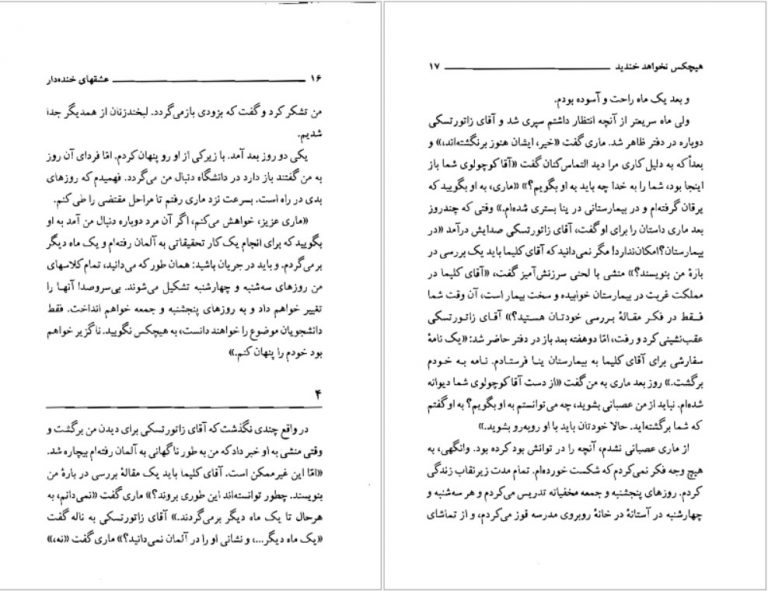 ۱۶ عشقهای خنده‌دار
من تشکر کرد و گفت که بزودی بازمی‌گردد. لبخندزنان از همدیگر جدا
شدیم.
یکی دو روز بعد آمد. با زیرکی از او رو پنهان کردم. امّا فردای آن روز
به من گفتند باز دارد در دانشگاه دنبال من می‌گردد. فهمیدم که روزهای
بدی در راه است. بسرعت نزد ماری رفتم تا مراحل مقتضی را طی کنم.
«ماری عزیز، خواهش می‌کنم، اگر آن مرد دوباره دنبال من آمد به او
بگویید که برای انجام یک کار تحقیقاتی به آلمان رفته‌ام و یک ماه دیگر
برمی‌گردم. و باید در جریان باشید: همان طور که می‌دانید، تمام کلاسهای
من روزهای سه‌شنبه و چهارشنبه تشکیل می‌شوند. بی‌سروصدا آنها را
تغییر خواهم داد و به روزهای پنجشنبه و جمعه خواهم انداخت. فقط
دانشجویان موضوع را خواهند دانست، به هیچکس نگویید. ناگزیر خواهم
بود خودم را پنهان کنم.»
۴
در واقع چندی نگذشت که آقای زاتورتسکی برای دیدن من برگشت و
وقتی منشی به او خبر داد که من به طور ناگهانی به آلمان رفته‌ام بیچاره شد.
«امّا این غیرممکن است. آقای کلیما باید یک مقالهٔ بررسی در بارهٔ من
بنویسند. چطور توانسته‌اند این طوری بروند؟» ماری گفت «نمی‌دانم، به
هرحال تا یک ماه دیگر برمی‌گردند.» آقای زاتورتسکی به ناله گفت
«یک ماه دیگر...، و نشانی او را در آلمان نمی‌دانید؟» ماری گفت «نه،»
هیچکس نخواهد خندید ۱۷
و بعد یک ماه راحت و آسوده بودم.
ولی ماه سریعتر از آنچه انتظار داشتم سپری شد و آقای زاتورتسکی
دوباره در دفتر ظاهر شد. ماری گفت «خیر، ایشان هنوز برنگشته‌اند،» و
بعداً که به دلیل کاری مرا دید التماس‌کنان گفت «آقا کوچولوی شما باز
اینجا بود، شما را به خدا چه باید به او بگویم؟» «ماری، به او بگویید که
یرقان گرفته‌ام و در بیمارستانی در ینا بستری شده‌ام.» وقتی که چندروز
بعد ماری داستان را برای او گفت، آقای زاتورتسکی صدایش درآمد «در
بیمارستان؟ امکان‌ندارد! مگر نمی‌دانید که آقای کلیما باید یک بررسی در
بارهٔ من بنویسند؟» منشی با لحنی سرزنش‌آمیز گفت، «آقای کلیما در
مملکت غربت در بیمارستان خوابیده و سخت بیمار است، آن وقت شما
فقط در فکر مقالهٔ بررسی خودتان هستید؟» آقای زاتورتسکی
عقب‌نشینی کرد و رفت، امّا دوهفته بعد باز در دفتر حاضر شد: «یک نامهٔ
سفارشی برای آقای کلیما به بیمارستان ینا فرستادم. نامه به خودم
برگشت.» روز بعد ماری به من گفت «از دست آقا کوچولوی شما دیوانه
شده‌ام. نباید از من عصبانی بشوید، چه می‌توانستم به او بگویم؟ به او گفتم
که شما برگشته‌اید. حالا خودتان باید با او روبه‌رو بشوید.»
از ماری عصبانی نشدم، آنچه را در توانش بود کرده بود. وانگهی، به
هیچ وجه فکر نمی‌کردم که شکست خورده‌ام. تمام مدت زیرنقاب زندگی
کردم. روزهای پنجشنبه و جمعه مخفیانه تدریس می‌کردم و هر سه‌شنبه و
چهارشنبه در آستانهٔ در خانهٔ روبروی مدرسه قوز می‌کردم، و از تماشای